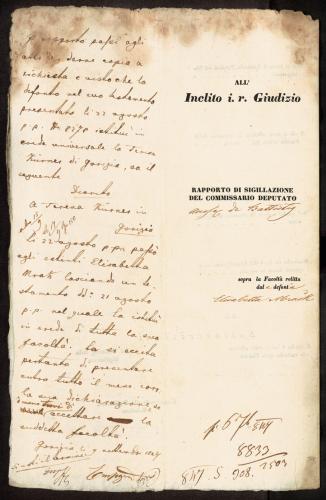 Il rapporto passi agli
atti, se ne dia copia a
richiesta e visto che la
defonta nel suo testamento
presentato li 22 agosto
p.p. No 8370 istituì in
erede universale la Teresa
Kürner di Gorizia, sia il
seguente
Decreto
A Teresa Kürner in
Gorizia
li 22 agosto p.p. passò
agli estinti Elisabetta
lasciando un te-
stamento dd. 21 agosto
p.p. nel quale la istituì
in erede di tutta la sua
facoltà. La si eccita
pertanto di presentare
entro tutto il mese corr.
la sua dichiarazione, se
accettare la
suddetta facoltà.
Gorizia li 9 settembre 1847
ALL'
Inclito i. r. Giudizio
RAPPORTO DI SIGILLAZIONE
DEL COMMISSARIO DEPUTATO
de Battisti
sopra la Facoltà relitta
dal a defont a
Elisabetta
8833
847 S. 908. 2803